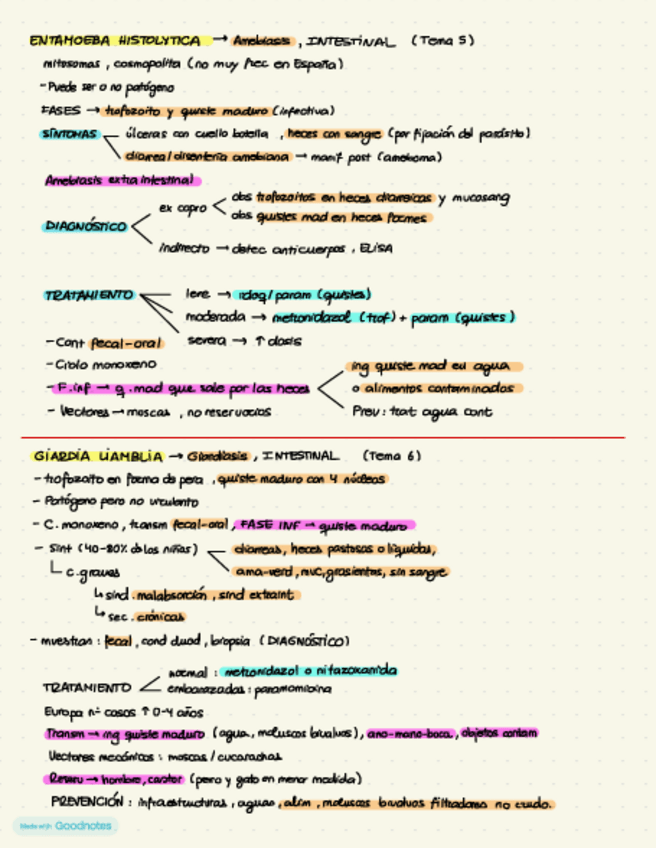 ENTAMOEBA HISTOLYTICA → Amebiasis, INTESTINAL (Tema 5)
mitosomas, cosmopolita (no muy frec en España)
- Puede ser o no patógeno
FASES → trofozoito y quiste maduro (infectiva)
SÍNTOMAS
úlceras con cuello botella, heces con sangre (por fijación del parásito)
diarrea/disentería amebiana → manif post (ameboma)
Amebiasis extraintestinal
DIAGNÓSTICO
ex copro
obs trofozoitos en heces diarreicas y mucosang
obs quistes mad en heces formes
indirecto → detec anticuerpos, ELISA
TRATAMIENTO
leve → idoq/param (quistes)
moderada → metronidazol (trof) + param (quistes)
severa → ↑ dosis
- Cont fecal-oral
- Ciclo monoxeno
- F. inf → q. mad que sale por las heces
ing quiste mad en agua
o alimentos contaminados
- Vectores → moscas, no reservorios
Prev: trat agua cont
GIARDIA LIAMBLIA → Giardiasis, INTESTINAL (Tema 6)
- trofozoito en forma de pera, quiste maduro con 4 núcleos
- Patógeno pero no virulento
- C. monoxeno, transm fecal-oral, FASE INF → quiste maduro
- Sint (40-80% de los niños)
diarreas, heces pastosas o líquidas,
ama-verd, muc, grasientas, sin sangre
C. graves
↳ sind. malabsorción, sind extraint
↳ sec. crónicas
- muestran: fecal, cond duod, biopsia (DIAGNÓSTICO)
TRATAMIENTO
normal: metronidazol o nitazoxanida
embarazadas: paramomicina
Europa nº casos ↑ 0-4 años
Transm → ing quiste maduro (agua, moluscos bivalvos), ano-mano-boca, objetos contam
Vectores mecánicos: moscas/cucarachas
Reserv → hombre, castor (perro y gato en menor medida)
PREVENCIÓN: infraestructuras, aguas, alim, moluscos bivalvos filtradores no crudo.
Made with Goodnotes